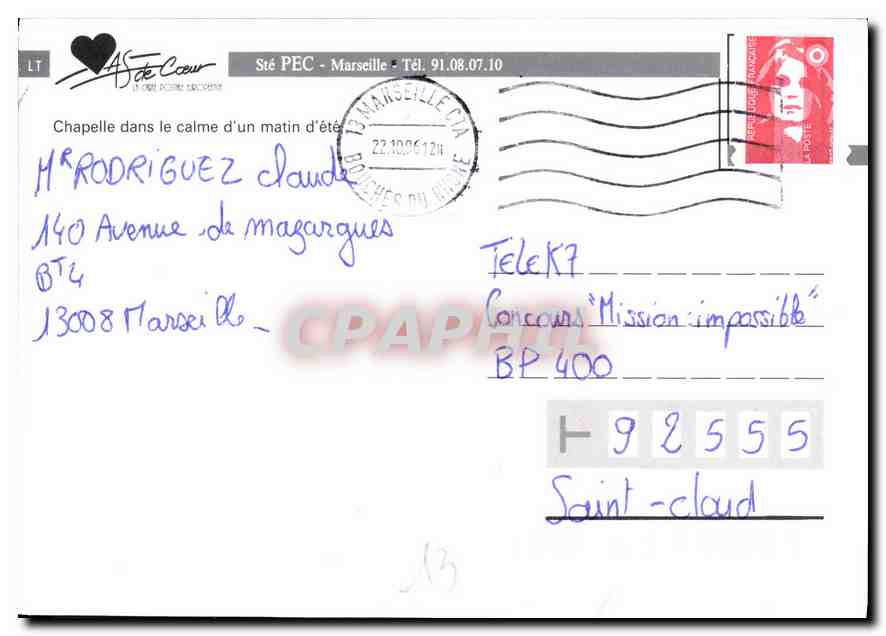 LT
AS de Cœur
LA CARTE POSTALE EUROPÉENNE
Sté PEC - Marseille • Tél. 91.08.07.10
RÉPUBLIQUE FRANÇAISE
LA POSTE
13 MARSEILLE CTA
22.10.96 12H
BOUCHES DU RHONE
Chapelle dans le calme d'un matin d'été
Mr RODRIGUEZ claude
140 Avenue de mazargues
BT4
13008 Marseille
CPAPHIL
TELEK7
Concours "Mission:impossible"
BP 400
92555
Saint-cloud
13